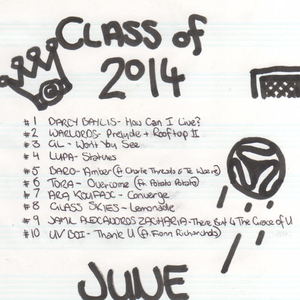 CLASS of
2014
#1 DARCY BAYLIS - How Can I Live?
#2 WARLORDS - Prelude + Rooftop II
#3 GL - Won't You See
#4 LUPA - Statues
#5 BARO - Amber (ft Charlie Threads &
#6 TOIRA - Overcome (ft. Potato Potato)
#7 ARA KOUFAX - Converge
#8 GLASS SKIES - Lemonade
#9 JAMIL ALEXANDROS ZACHARIA - There But 4 The Grace of U
#10 UV BOI - Thank U (ft. Fionn Richards)
JUNE